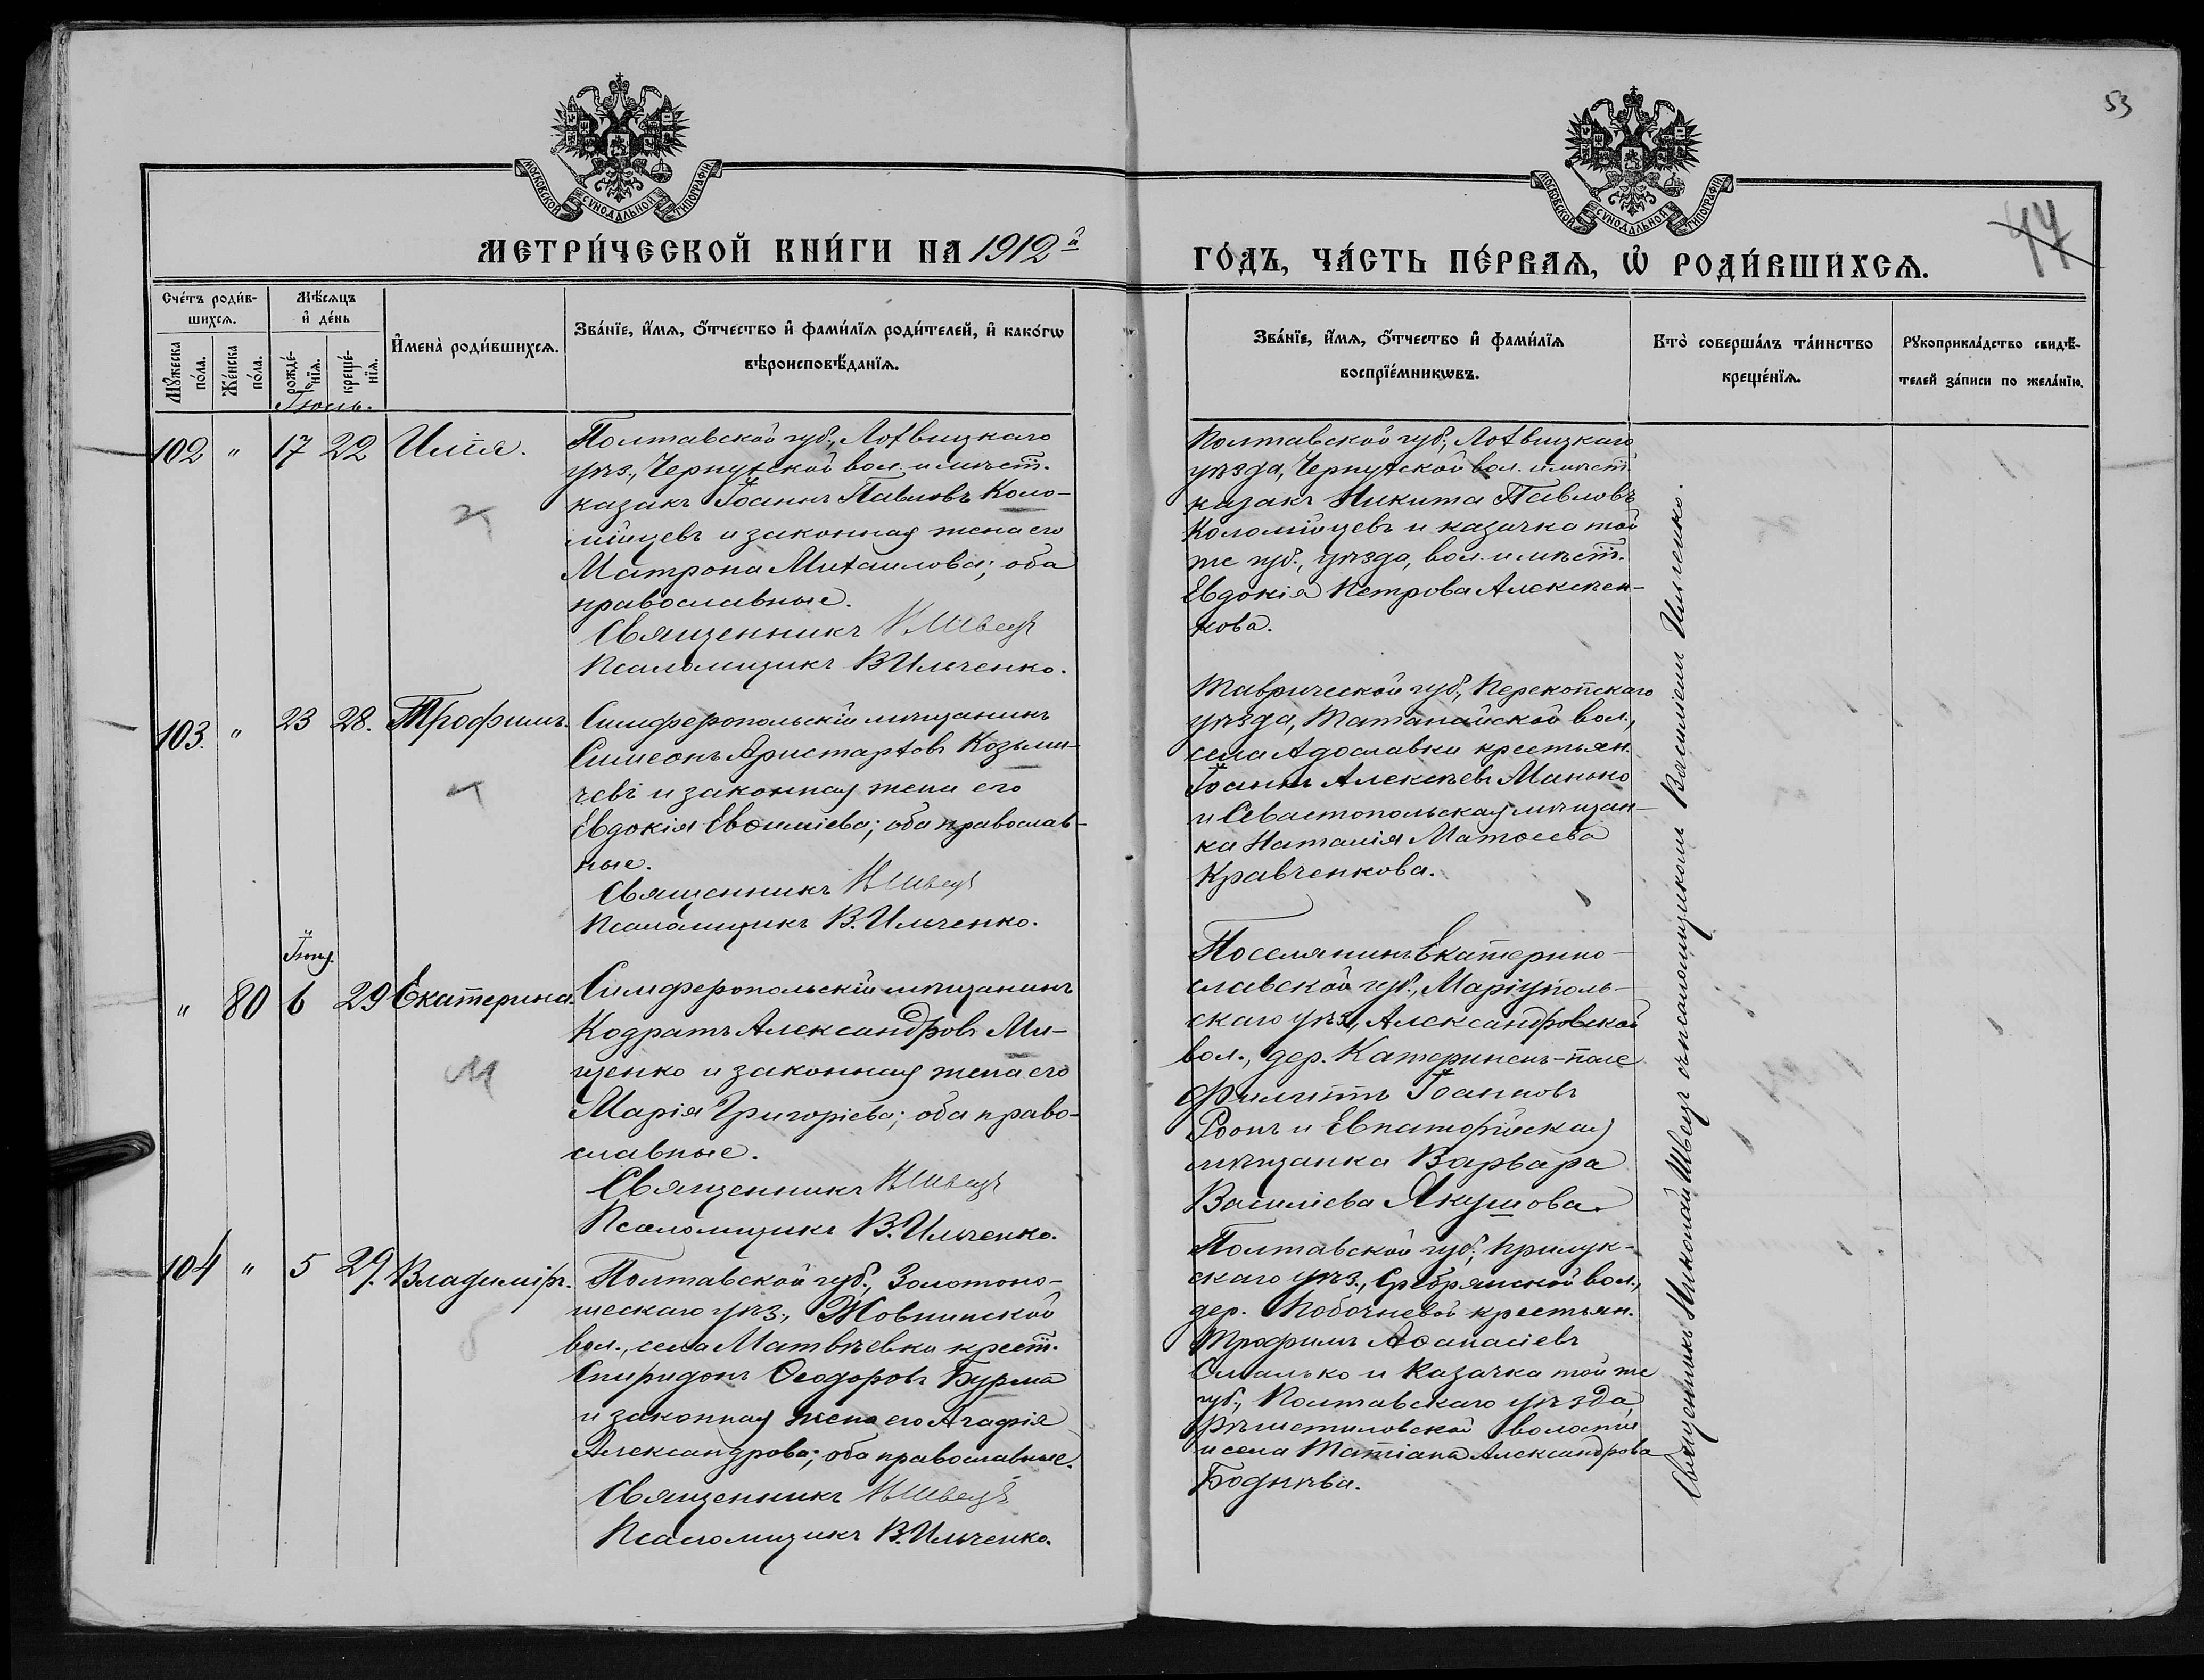 53
44
МОСКОВСКОЙ СѴНОДАЛЬНОЙ ТИПОГРАФІИ
МОСКОВСКОЙ СѴНОДАЛЬНОЙ ТИПОГРАФІИ
МЕТРИ́ЧЕСКОЙ КНИ́ГИ НА 1912й
ГО́ДЪ, ЧА́СТЬ ПЕ́РВАѦ, Ѽ РОДИ́ВШИХСѦ.
Сче́тъ роди́в-
шихсѧ.
Мꙋ́жеска по́ла.
Же́нска по́ла.
Мѣ́сѧцъ
и҆ де́нь
рожде́-нїѧ.
креще́-нїѧ.
И҆мена̀ роди́вшихсѧ.
Зва́нїе, и҆́мѧ, ѻ҆́тчество и҆ фами́лїѧ роди́телей, и҆ како́гѡ
вѣроисповѣ́данїѧ.
Зва́нїе, и҆́мѧ, ѻ҆́тчество и҆ фами́лїѧ
воспрїе́мникѡвъ.
Кто̀ соверша́лъ та́инство
креще́нїѧ.
Рꙋкоприкла́дство свидѣ́-
телей за́писи по жела́нїю.
Іюль.
102 " 17 22 Илія.
Полтавской губ., Лохвицкаго
уѣз., Чернухской вол. и мѣст.
казакъ Іоаннъ Павловъ Коло-
мійцевъ и законная жена его
Матрона Михаилова; оба
православные.
Священникъ Н Швецъ
Псаломщикъ В Ильченко.
Полтавской губ., Лохвицкаго
уѣзда, Чернухской вол. и мѣст.
казакъ Никита Павловъ
Коломійцевъ и казачка той
же губ., уѣзда, вол. и мѣст.
Евдокія Петрова Алексѣен-
кова.
103. " 23 28. Трофимъ.
Симферопольскій мѣщанинъ
Симеонъ Аристарховъ Козьми-
чевъ и законная жена его
Евдокія Евѳиміева; оба православ-
ные.
Священникъ Н Швецъ
Псаломщикъ В. Ильченко.
Таврической губ., Перекопскаго
уѣзда, Татанайской вол.,
села Адославки крестьян.
Іоаннъ Алексѣевъ Манько
и Севастопольская мѣщан-
ка Наталія Матѳеева
Кравченкова.
Іюня
" 80 6 29 Екатерина.
Симферопольскій мѣщанинъ
Кодратъ Александровъ Ми-
щенко и законная жена его
Марія Григоріева; оба право-
славные.
Священникъ Н Швецъ
Псаломщикъ В. Ильченко.
Поселянинъ Екатерино-
славской губ., Маріуполь-
скаго уѣз., Александровской
вол., дер. Катеринень-поле
Филиппъ Іоанновъ
Роопъ и Евпаторійская
мѣщанка Варвара
Василіева Якушова.
104 " 5 29. Владиміръ.
Полтавской губ., Золотоно-
шескаго уѣз., Жовнинской
вол., села Матвѣевки крест.
Спиридонъ Ѳеодоровъ Бурма
и законная жена его Агафія
Александрова; оба православные.
Священникъ Н Швецъ
Псаломщикъ В. Ильченко.
Полтавской губ., Прилук-
скаго уѣз., Сребрянской вол.,
дер. Побочневой крестьян.
Трофимъ Аѳанасіевъ
Смалько и казачка той же
губ., Полтавскаго уѣзда,
Рѣшетиловской волости
и села Татіана Александрова
Боднѣва.
Священникъ Николай Швецъ съ псаломщикомъ Василіемъ Ильченко.